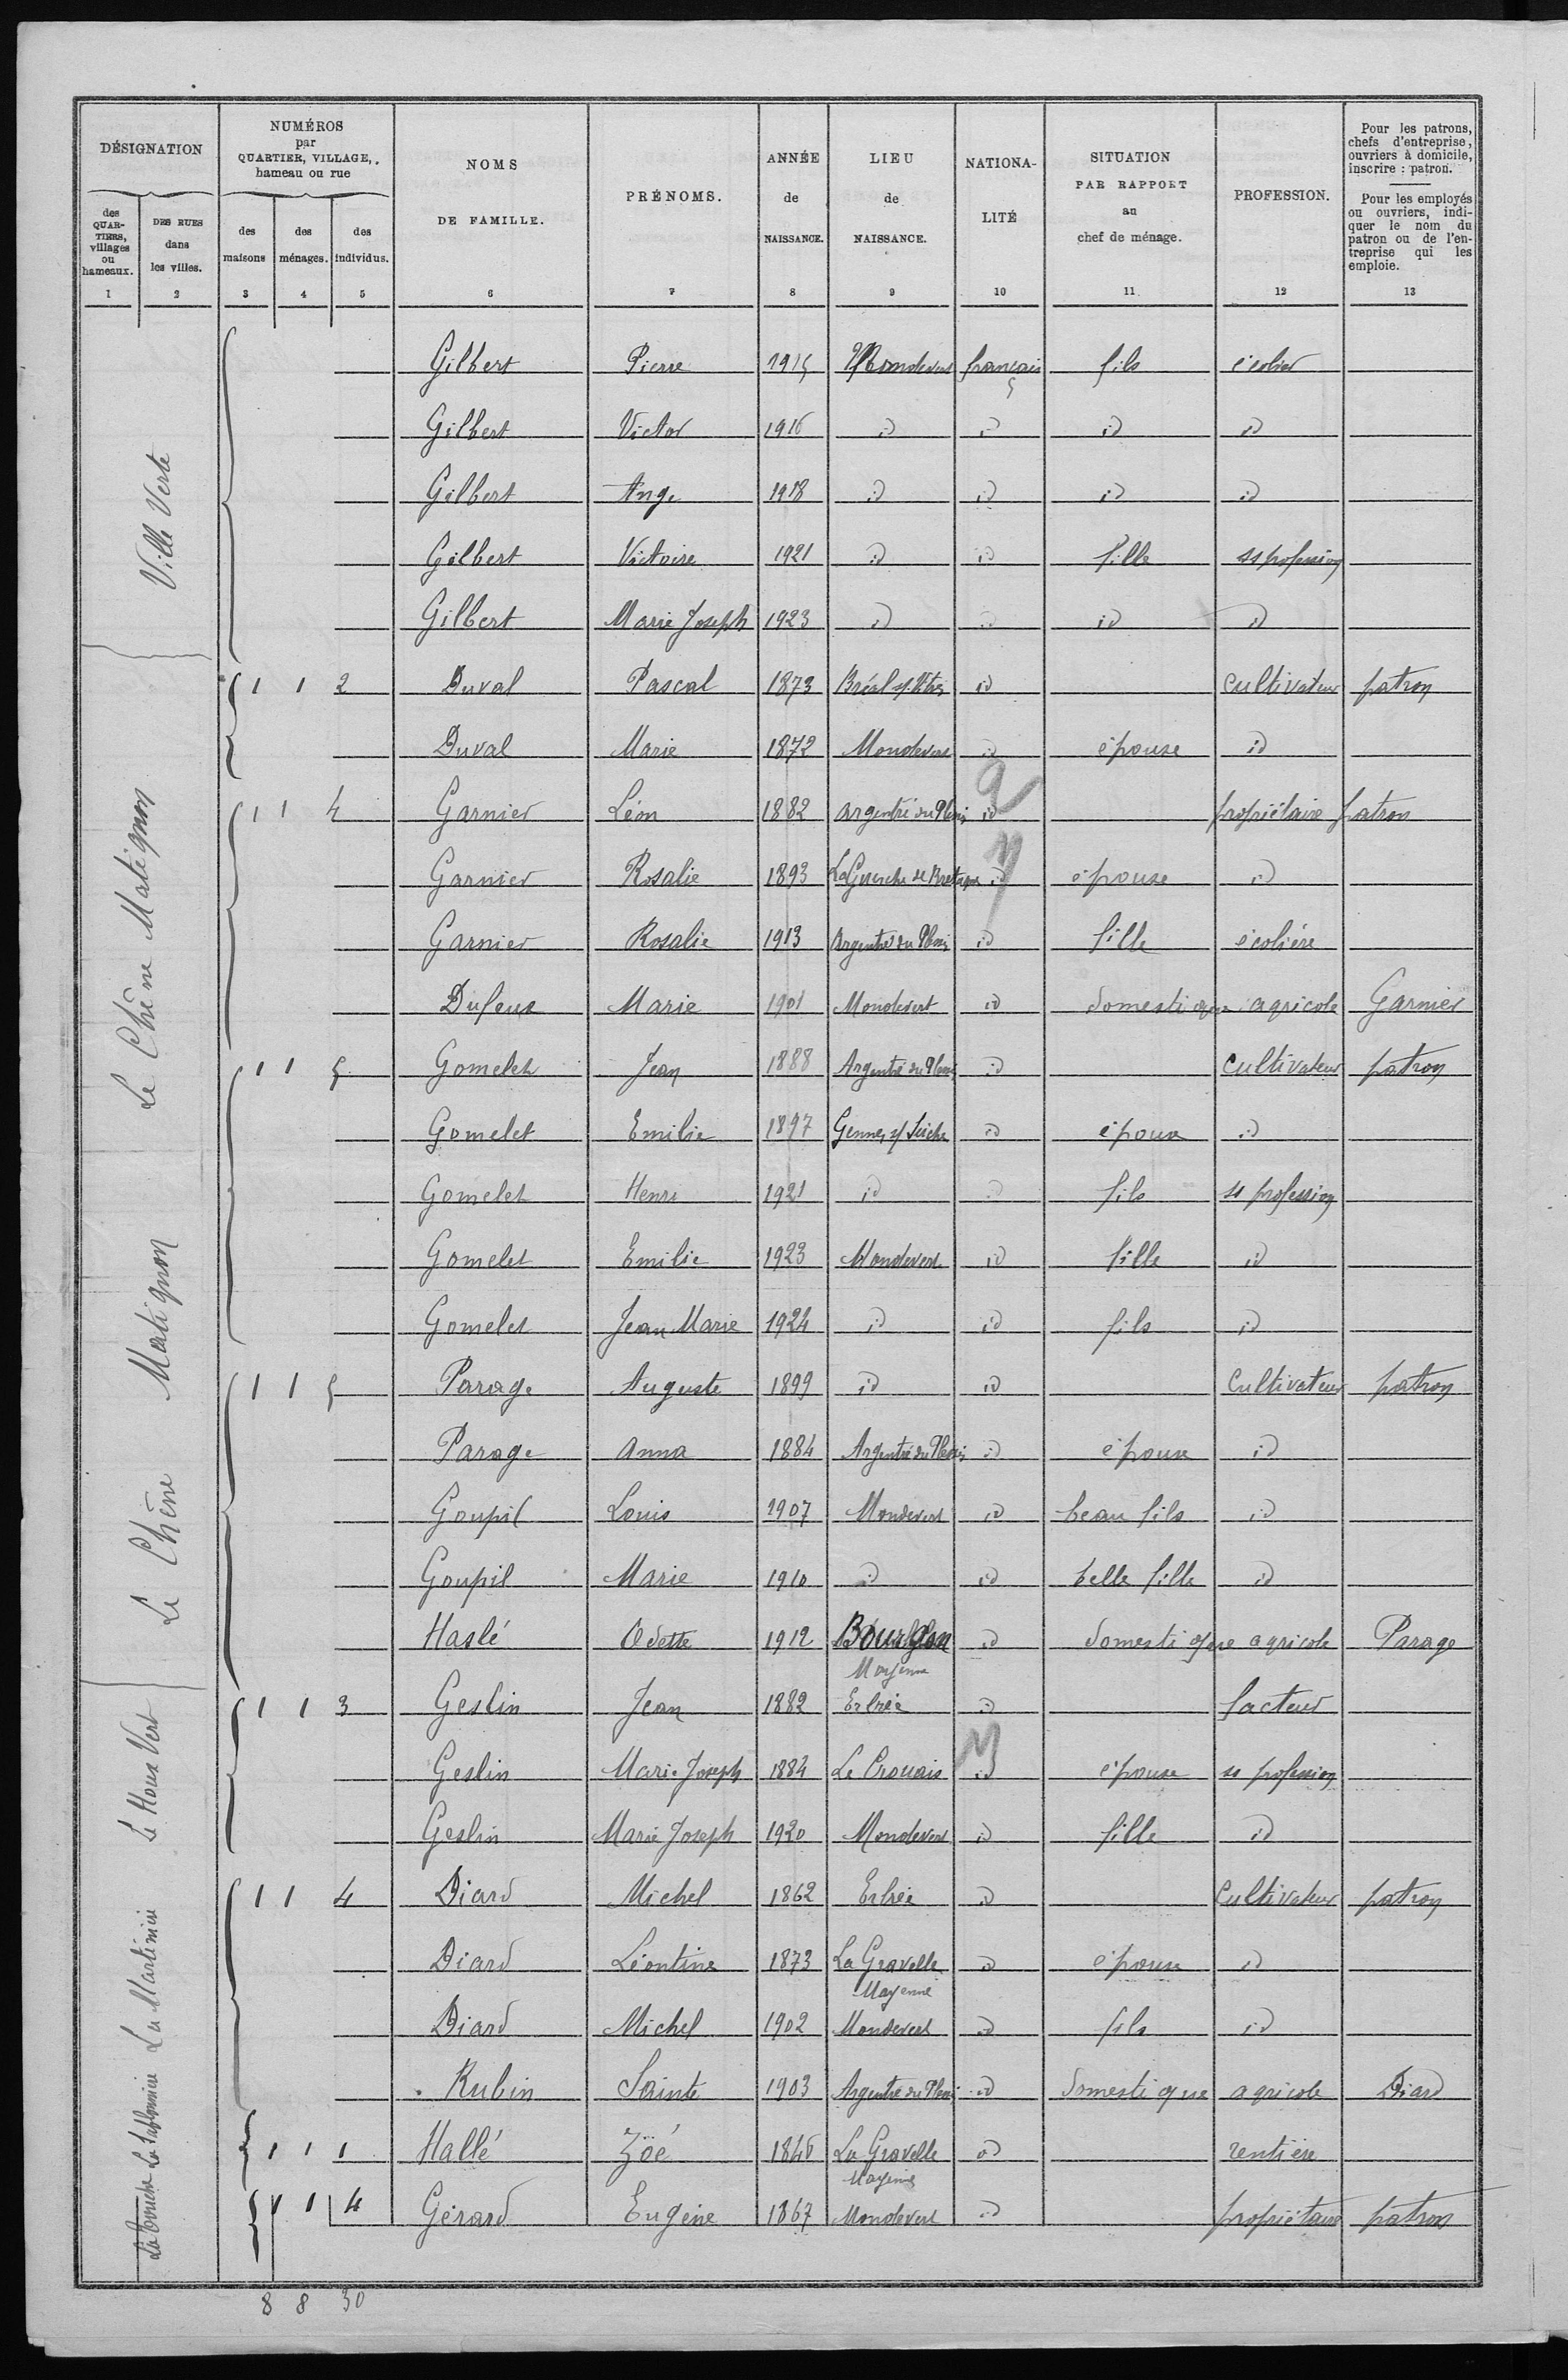 DÉSIGNATION
NUMÉROS
par
QUARTIER, VILLAGE,
hameau ou rue
NOMS
DE FAMILLE.
PRÉNOMS.
ANNÉE
de
NAISSANCE.
LIEU
de
NAISSANCE.
NATIONA-
LITÉ
SITUATION
PAR RAPPORT
au
chef de ménage.
PROFESSION.
Pour les patrons,
chefs d'entreprise,
ouvriers à domicile,
inscrire : patron.
Pour les employés
ou ouvriers, indi-
quer le nom du
patron ou de l'en-
treprise qui les
emploie.
des
QUAR-
TIERS,
villages
ou
hameaux.
DES RUES
dans
les villes.
des
maisons
des
ménages.
des
individus.
1 2 3 4 5 6 7 8 9 10 11 12 13
Ville Verte
Gilbert Pierre 1915 Mondevert français fils écolier
Gilbert Victor 1916 id id id id
Gilbert Ange 1918 id id id id
Gilbert Victoire 1921 id id fille ss profession
Gilbert Marie Joseph 1923 id id id id
Le Chêne Matignon
1 1 2 Duval Pascal 1873 Bréal s/ Vitré id cultivateur patron
Duval Marie 1872 Mondevert id épouse id
1 1 4 Garnier Léon 1882 Argentré du Plessis id propriétaire patron
Garnier Rosalie 1893 La Guerche de Bretagne id épouse id
Garnier Rosalie 1913 Argentré du Plessis id fille écolière
Dufeux Marie 1901 Mondevert id domestique agricole Garnier
1 1 5 Gomelet Jean 1888 Argentré du Plessis id cultivateur patron
Gomelet Emilie 1897 Gennes s/ Seiche id épouse id
Gomelet Henri 1921 id id fils ss profession
Gomelet Emilie 1923 Mondevert id fille id
Gomelet Jean Marie 1924 id id fils id
Le Chêne Matignon
1 1 5 Parage Auguste 1899 id id Cultivateur patron
Parage Anna 1884 Argentré du Plessis id épouse id
Goupil Louis 1907 Mondevert id beau fils id
Goupil Marie 1910 id id belle fille id
Haslé Odette 1912 Bourgon Mayenne id domestique agricole Parage
Le Haux Vert
1 1 3 Geslin Jean 1882 Erbrée id facteur
Geslin Marie Joseph 1884 Le Crouais id épouse ss profession
Geslin Marie Joseph 1920 Mondevert id fille id
La Martinière
1 1 4 Diard Michel 1862 Erbrée id Cultivateur patron
Diard Léontine 1873 La Gravelle Mayenne id épouse id
Diard Michel 1902 Mondevert id fils id
Rubin Sainte 1903 Argentré du Plessis id domestique agricole Diard
La Sablonnière
1 1 1 Hallé Zoé 1846 La Gravelle Mayenne id rentière
La Touche
1 1 4 Gérard Eugène 1867 Mondevert id propriétaire patron
8 8 30